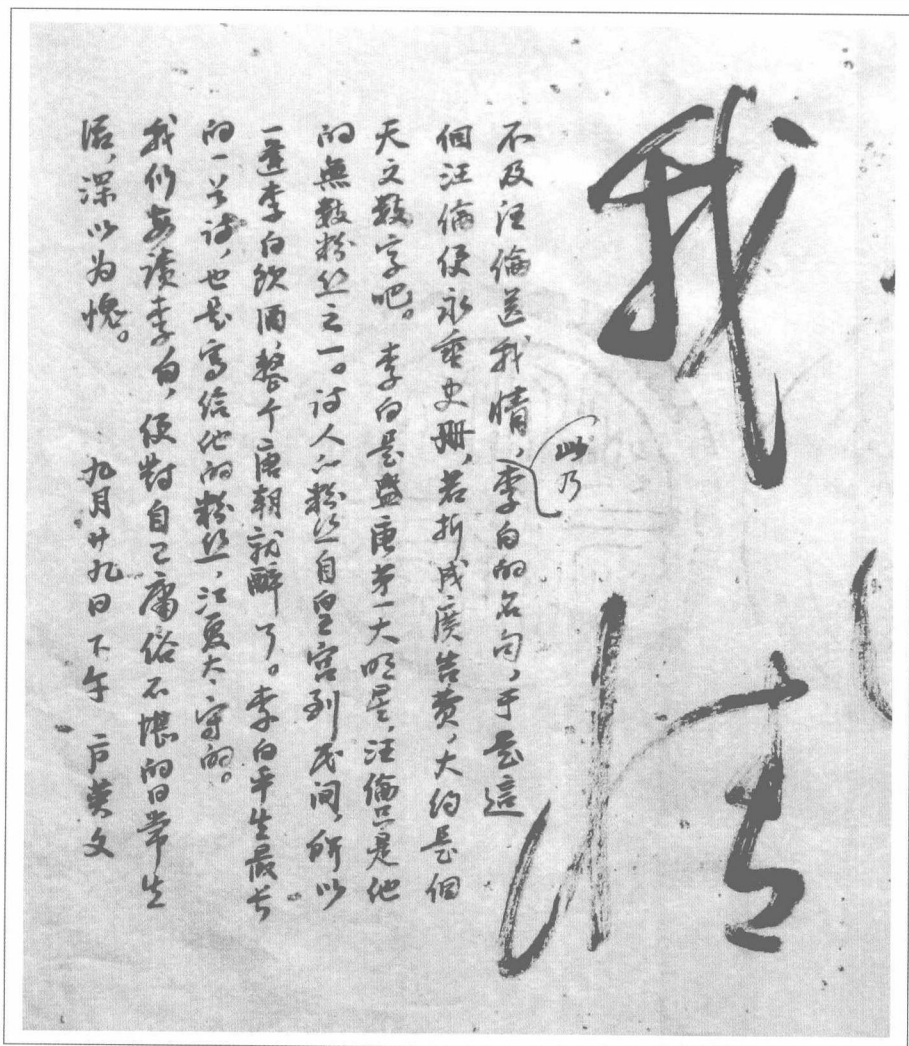 我情
不及汪倫送我情,此乃李白的名句,于是這
個汪倫便永垂史册,若折成廣告费,大约是個
天文數字吧。李白是盛唐第一大明星,汪倫只是他
的無數粉丝之一。诗人的粉丝自皇宫到民间,所以
一逢李白飲酒,整个唐朝就醉了。李白平生最长
的一首诗,也是寫给他的粉丝,江夏太守的。
我们每读李白,便對自己庸俗不堪的日常生
活,深以为愧。 九月廿九日下午 方英文